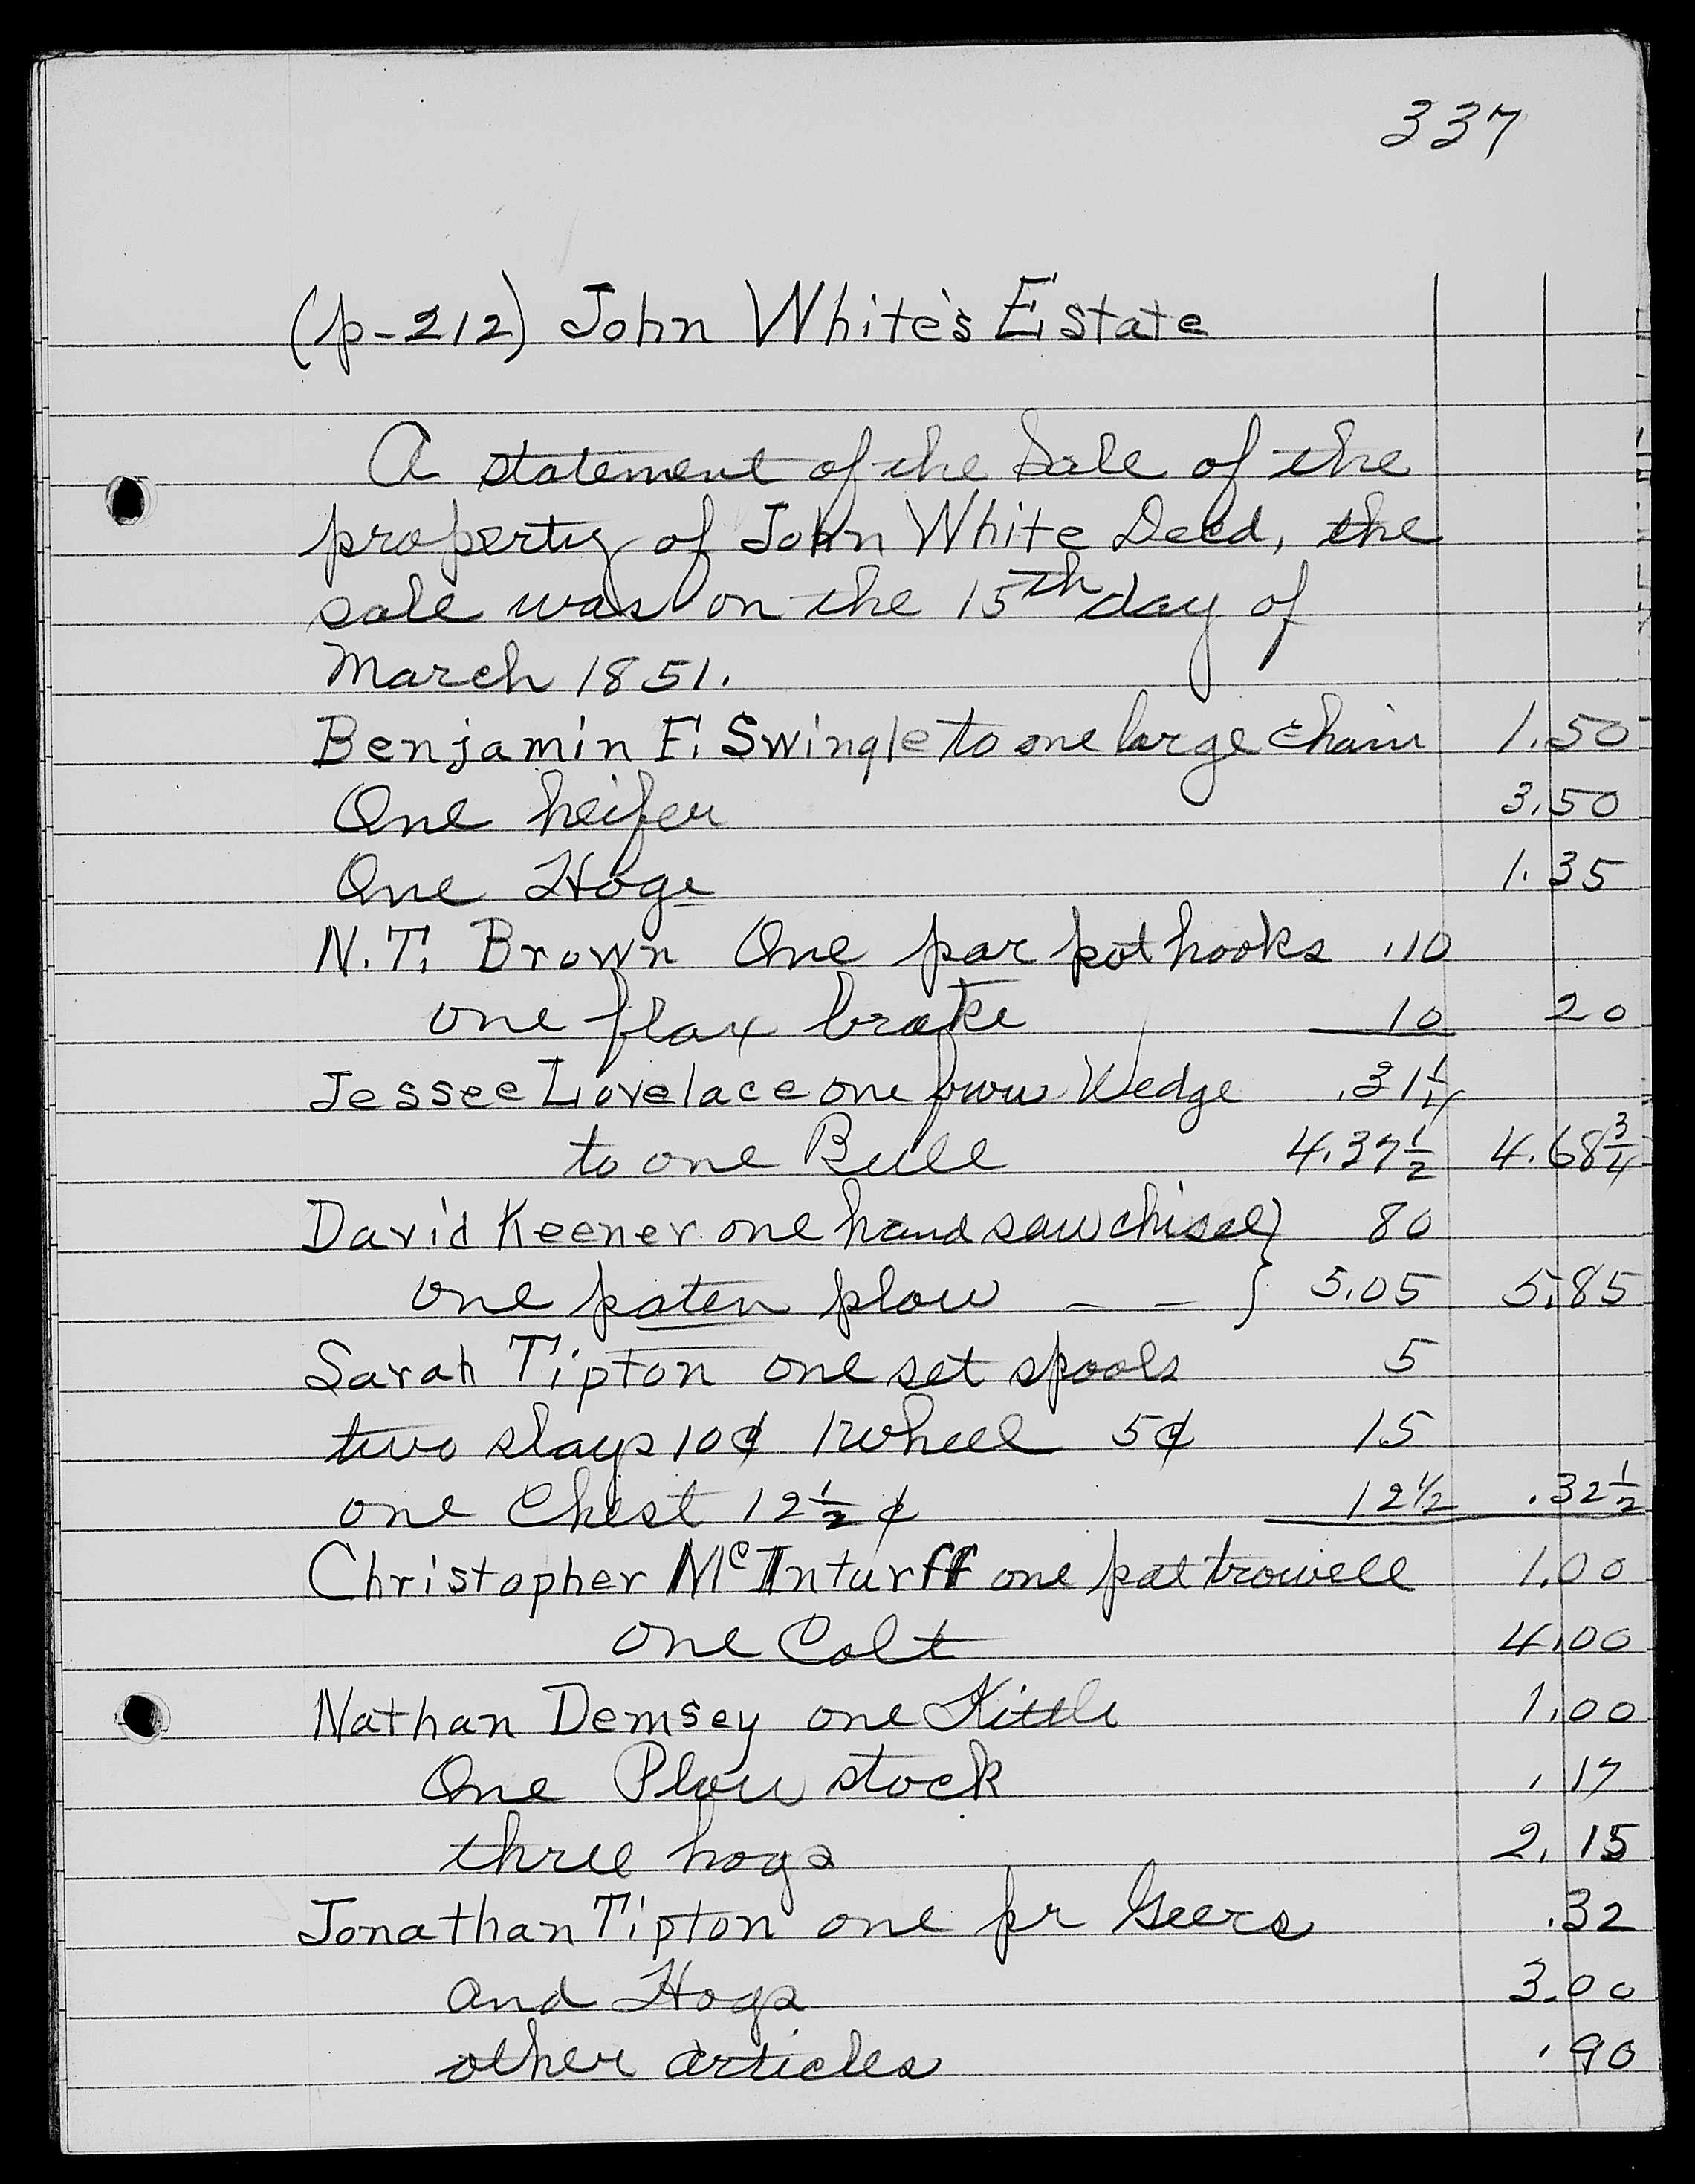 337
(p-212) John White's Estate
A statement of the Sale of the
property of John White Decd, the
sale was on the 15th day of
March 1851.
Benjamin F. Swingle to one large chain 1.50
One heifer 3.50
One Hoge 1.35
N.T. Brown One par pot hooks .10
one flax brake 10 20
Jessee Lovelace one Wedge .31 1/4
to one Bull 4.37 1/2 4.68 3/4
David Keener one hand saw chisel } 80
one paten plow - - } 5.05 5.85
Sarah Tipton one set spools 5
two slays 10¢ 1 wheel 5¢ 15
one Chest 12 1/2 ¢ 12 1/2 .32 1/2
Christopher McInturff one pat trowell 1.00
one Colt 4.00
Nathan Demsey one Kittle 1.00
One Plow stock .17
three hogs 2.15
Jonathan Tipton one pr Geers .32
and Hogs 3.00
other articles .90